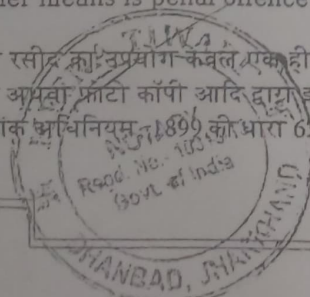 means is penal offence
रसीद का उपयोग केवल एक ही
अथवा फ़ोटो कॉपी आदि द्वारा
अधिनियम, 1899 की धारा 6
NOTARY
Regd. No.-
Govt. of India
DHANBAD, JHARKHAND